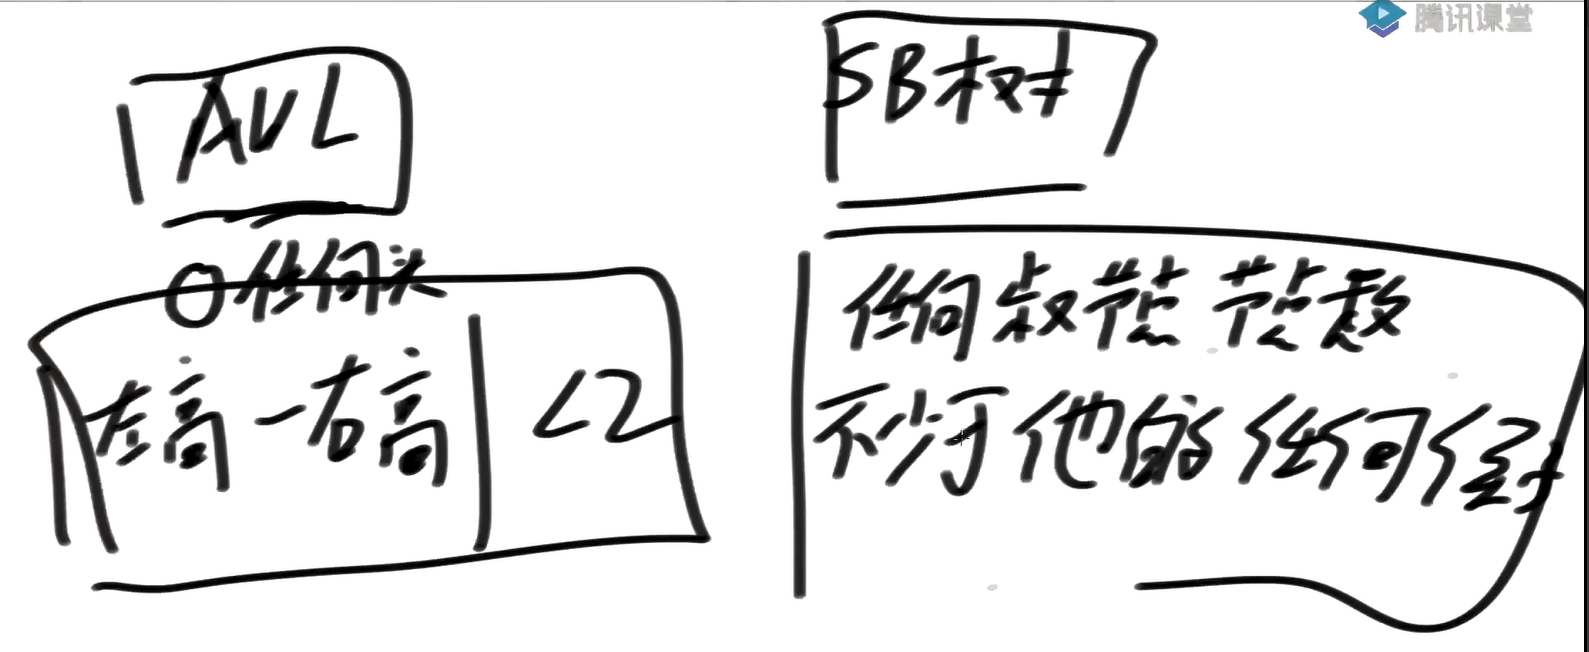 腾讯课堂
AVL
任何头
|左高-右高|<2
SB树
任何叔节点 节点数
不少于他的任何侄